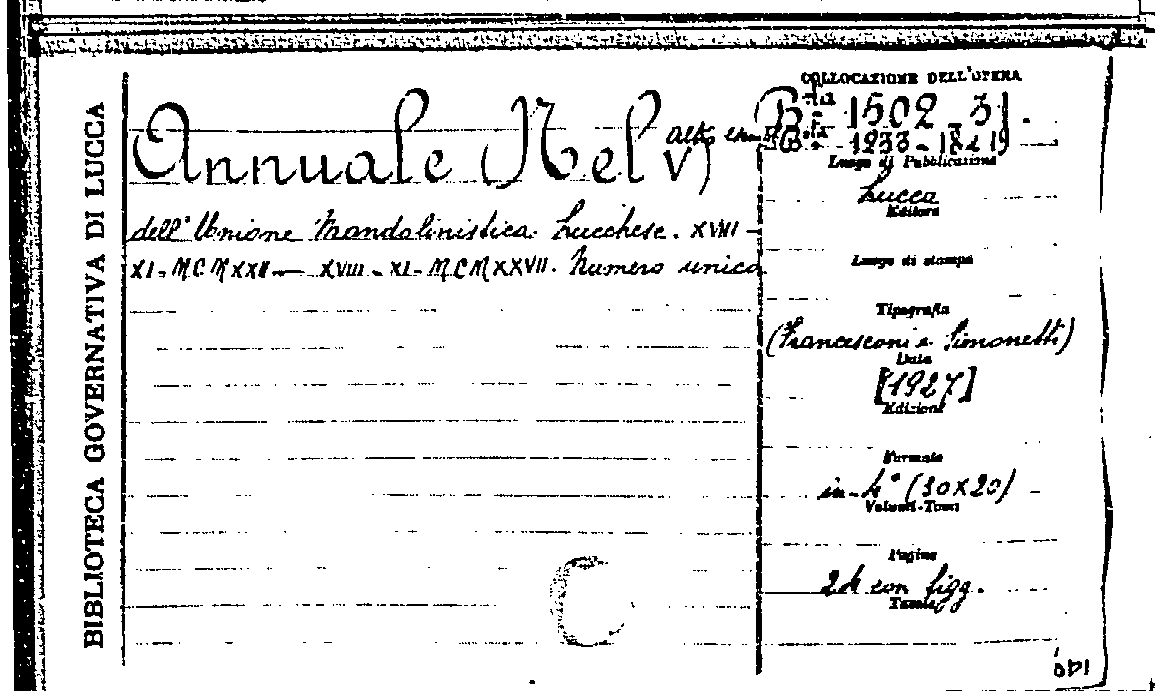 BIBLIOTECA GOVERNATIVA DI LUCCA
Annuale (Nel V)
dell'Unione Mandolinistica Lucchese. XVIII -
XI - MCMXXII — XVIII - XI - MCMXXVII. Numero unico
COLLOCAZIONE DELL'OPERA
Bta 1502_31.
Bta 1233 - 18 e 19
Luogo di Pubblicazione
Lucca
Editore
Luogo di stampa
Tipografia
(Francesconi e Simonetti)
Data
[1927]
Edizione
Formato
in-4° (30x20)
Volumi-Tomi
Pagine
24 con figg.
Tavole